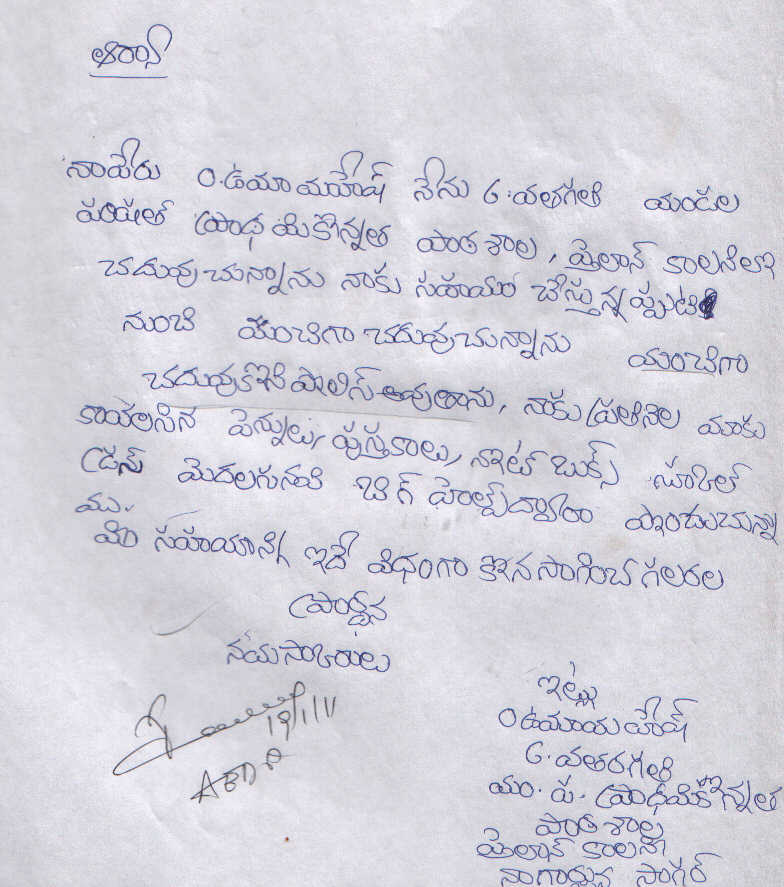 ఆరాన్
నాపేరు O. ఉమా మహేష్ నేను 6.వతరగతి మండల
పరిషత్ ప్రాధమికోన్నత పాఠశాల, పైలాన్ కాలనిలో
చదువు చున్నాను నాకు సహాయం చేస్తున్నప్పుటి
నుంచి మంచిగా చదువుచున్నాను మంచిగా
చదువుకొని పొలిస్ అవుతాను, నాకు ప్రతినెల మాకు
కావలసిన పెన్నులు, పుస్తకాలు, నోట్ బుక్స్ స్కూల్
డ్రస్ మొదలగునవి బిగ్ హెల్ప్ ద్వారా పొందుచున్నా
ము.
మీ సహయాన్ని ఇదే విధంగా కొనసాగించ గలరల
ప్రార్ధన
నమస్కారలు
19/1/11
ఇట్లు
O ఉమామహేష్
6.వతరగతి
మం. ప. ప్రాధమికోన్నత
పాఠశాల
పైలాన్ కాలని
నాగార్జున సాగర్